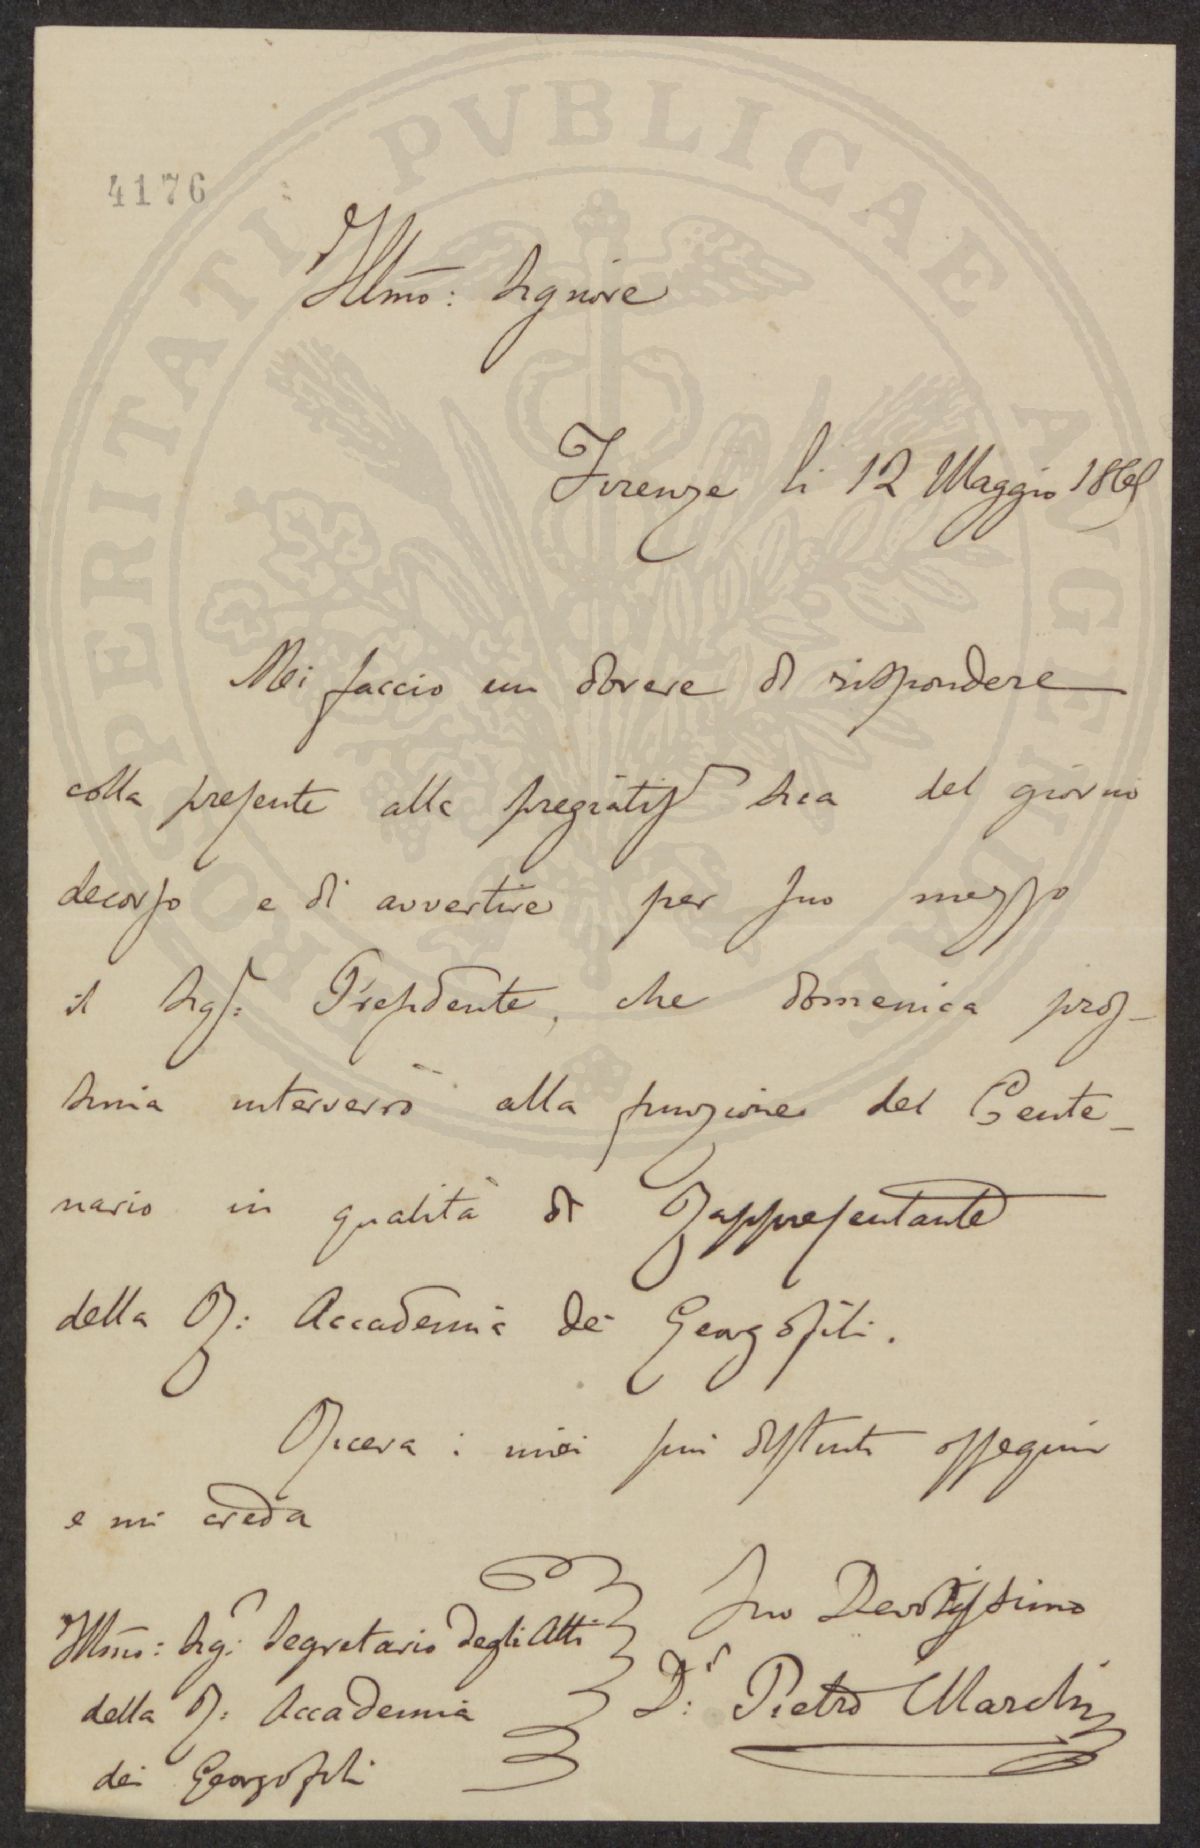 4176
Illmo: Signore
Firenze li 12 Maggio 1865
Mi faccio un dovere di rispondere
colla presente alla pregiatiss Sua del giorno
decorso e di avvertire per suo mezzo
il Sigr: Presidente, che domenica pros-
sima interverrò alla funzione del Cente-
nario in qualità di Rappresentante
della R: Accademia dei Georgofili.
Riceva i miei più distinti ossequi
e mi creda
Suo Devotissimo
Dr: Pietro Marchi
Illmo: Sigr: Segretario degli Atti
della R: Accademia
dei Georgofili
PROSPERITATI PVBLICAE AVGENDAE